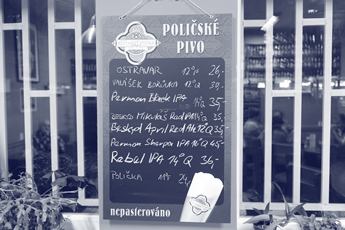 POLIČSKÉ
PIVO
OSTRAVAR 12° 26,-
12°
Permon Black IPA 35,-
Mikuláš Red IPA 35,-
Beskyd April Red Ale 12° 35,-
Permon Sherpa IPA 16° 45,-
Rebel IPA 14° 36,-
POLIČKA 11° 24,-
nepasterováno